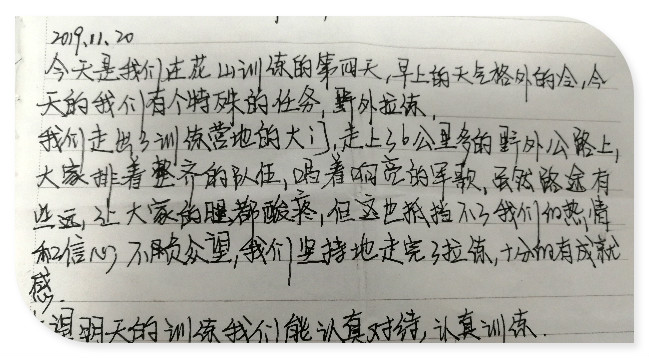 2019.11.20
今天是我们在花山训练的第四天,早上的天气格外的冷,今
天的我们有个特殊的任务,野外拉练,
我们走出了训练营地的大门,走上了6公里多的野外公路上,
大家排着整齐的队伍,唱着响亮的军歌,虽然路途有
些远,让大家的腿都酸疼,但这也抵挡不了我们的热情
和信心了不负众望,我们坚持地走完了拉练,十分的有成就
感.
明天的训练我们能认真对待,认真训练.